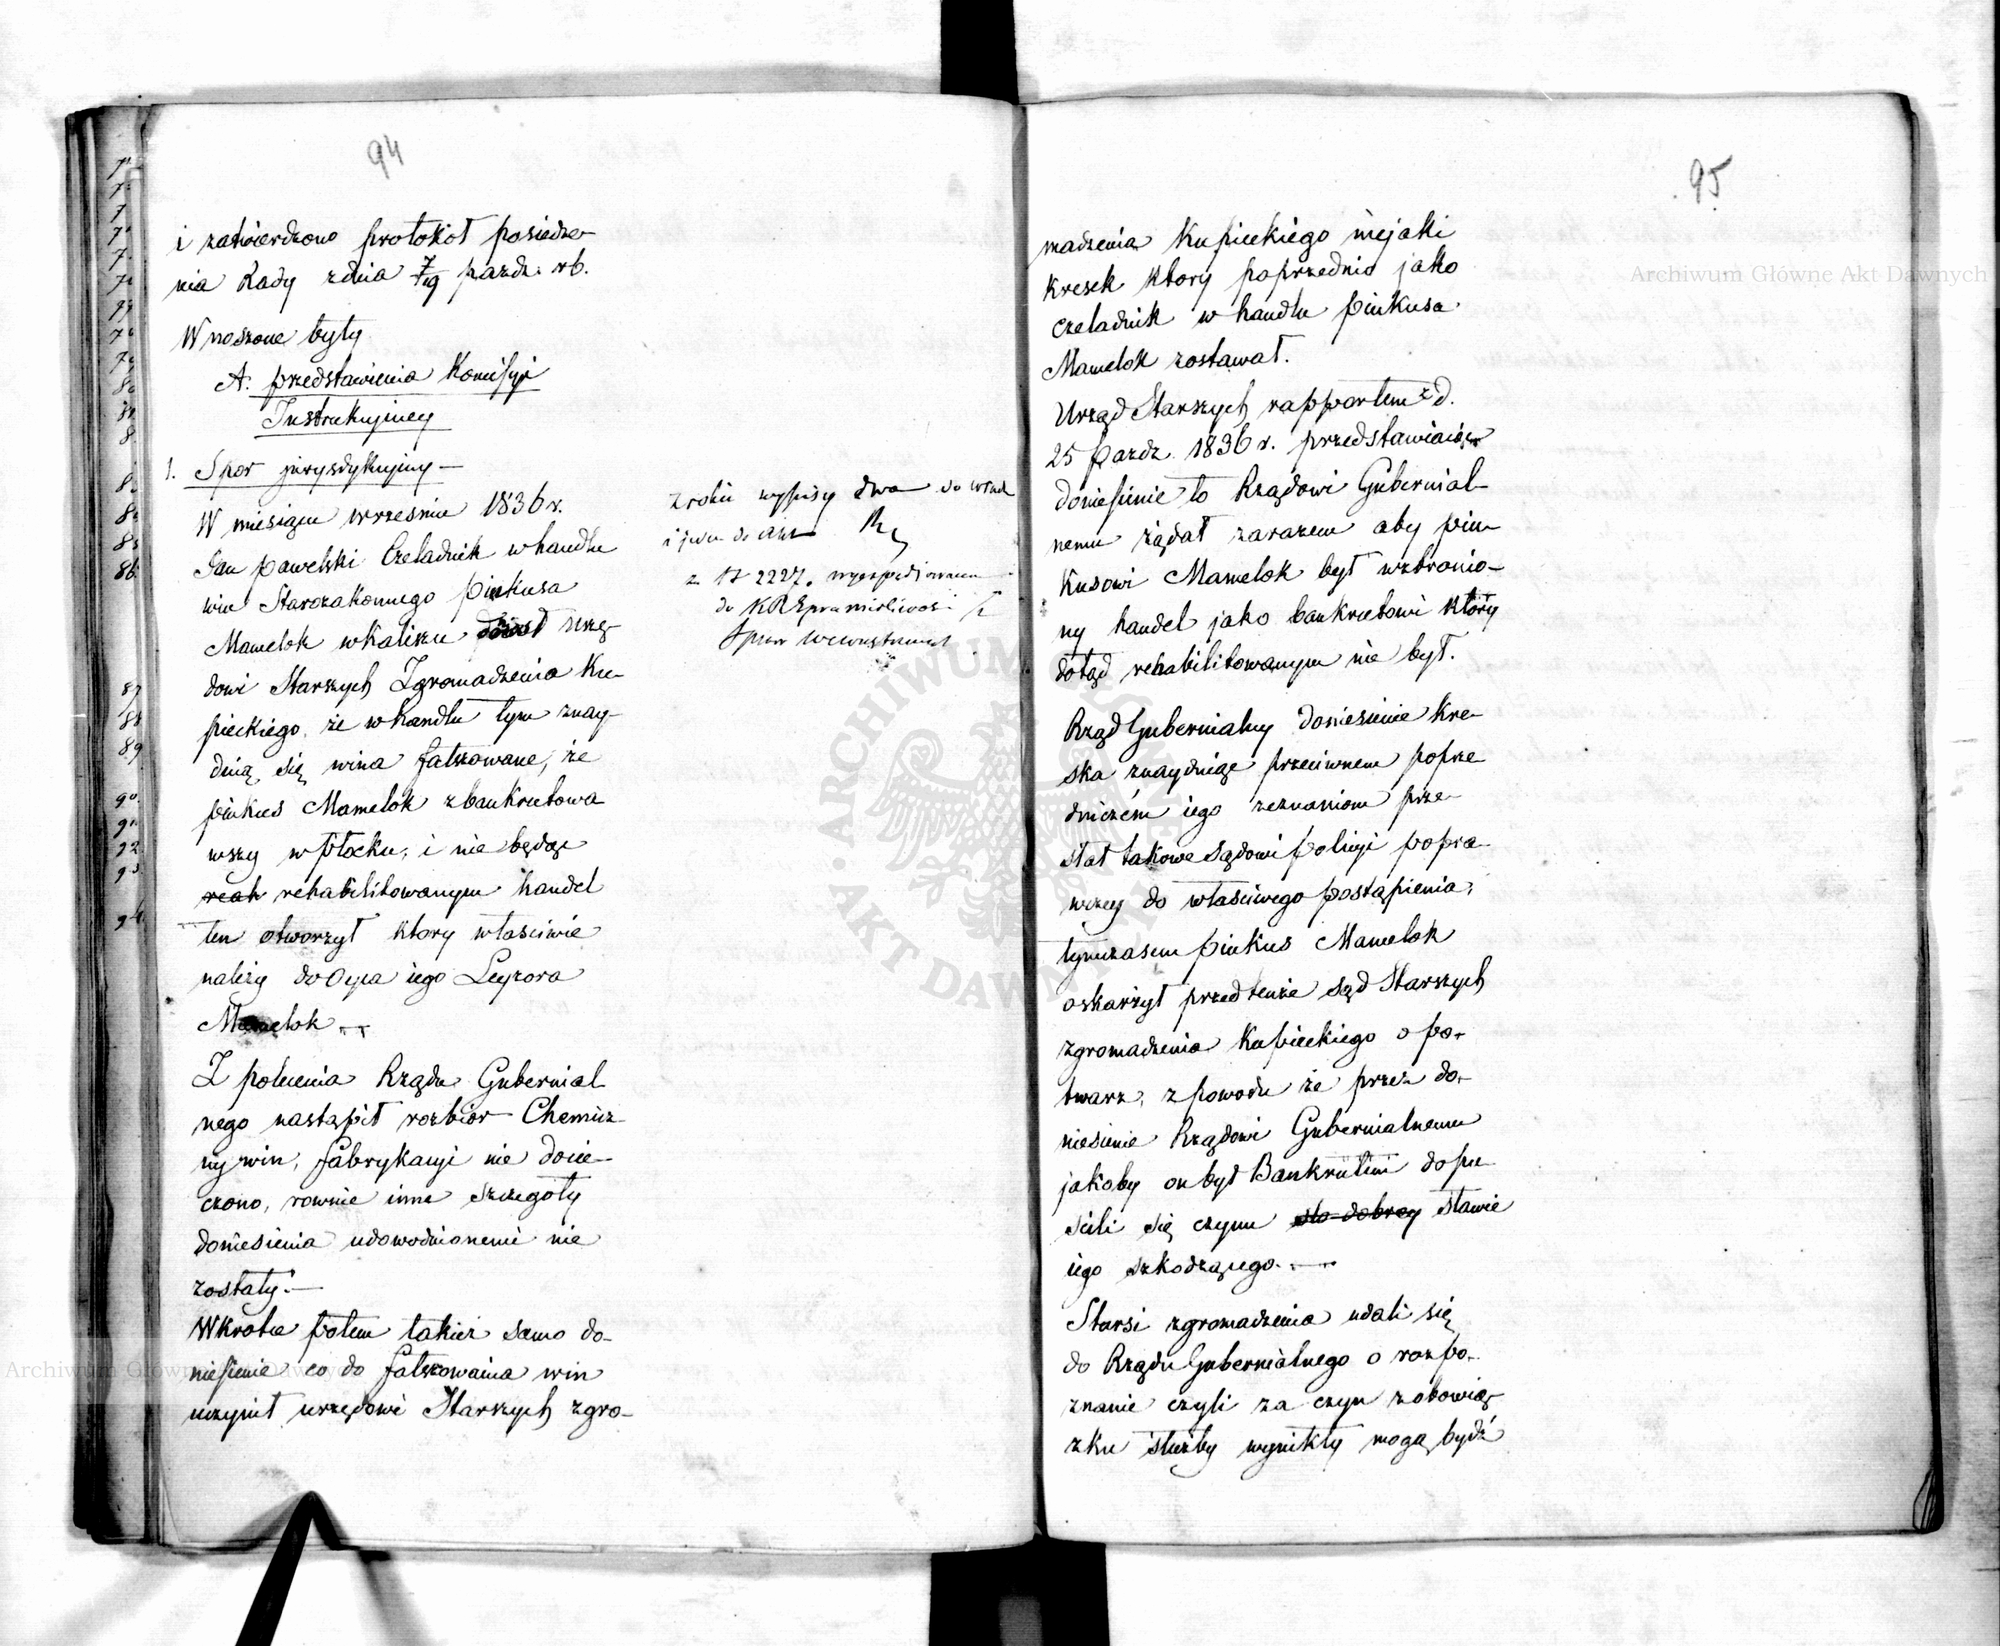 94
i zatwierdzono protokół posiedze-
nia Rady zdnia 7/19 pazdz. rb.
Wnoszone były
A. przedstawienia Komissyi
Instrukcyiney
1. Spor jurysdykcyiny —
W miesiącu wrzesniu 1836 r.
Jan Pawelski Czeladnik w handlu
win Starozakonnego Pinkusa
Mamelok w Kaliszu doniosł Urzę-
dowi Starszych Zgromadzenia Ku-
pieckiego, że w handlu tym znay-
duią się wina fałszowane, że
Pinkus Mamelok zbankrutowa
wszy w Płocku, i nie będąc
reah rehabilitowanym handel
ten otworzył ktory własciwie
należy do Oyca iego Leyzora
Mamelok
Z polecenia Rządu Gubernial
nego nastąpił rozbior Chemicz
ny win, fabrykacyi nie docie-
czono, rownie inne szczegoły
doniesienia udowodnionemi nie
zostały. —
Wkrotce potem takież samo do-
niesienie co do fałszowania win
uczynił urzędowi Starszych zgro-
z roku wypisy dwa do
i jeden do akt
z N 2227. wyexpediowano
do KRS
Spraw Wewnętrznych
95
madzenia Kupieckiego niejaki
Kresek ktory poprzednio jako
czeladnik w handlu Pinkusa
Mamelok zostawał.
Urząd Starszych rapportem z d.
25 Pazdz. 1836 r. przedstawiaiąc
doniesienie to Rządowi Gubernial-
nemu żądał zarazem aby Pin-
kusowi Mamelok był wzbronio-
ny handel jako bankrutowi który
dotąd rehabilitowanym nie był.
Rząd Gubernialny doniesienie Kre-
ska znayduiąc przeciwnem poprze-
dniczém iego zeznaniom prze-
słał takowe Sądowi Policyi popra-
wczey do właściwego postąpienia,
tymczasem Pinkus Mamelok
oskarżył przed tenże sąd Starszych
zgromadzenia Kupieckiego o po-
twarz, z powodu że przez do-
niesienie Rządowi Gubernialnemu
jakoby on był Bankrutem dopu-
scili się czynu sto dobrey sławie
iego szkodzącego. —
Starsi zgromadzenia udali się
do Rządu Gubernialnego o rozpo-
znanie czyli za czyn z obowią-
zku służby wynikły mogą bydź
Archiwum Główne Akt Dawnych